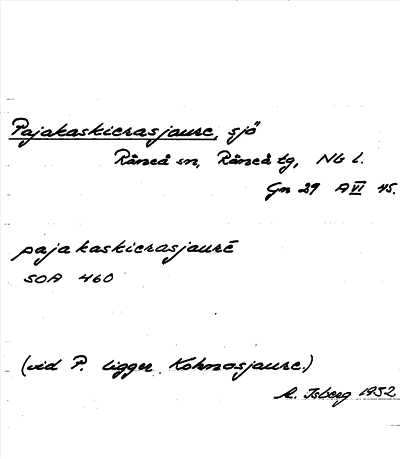 Pajakaskierasjaure, sjö
Råneå sn, Råneå tg, NG l.
Gn 29 A VI 45.
pajakaskierasjaurē
SOA 460
(vid P. ligger Kohmosjaure.)
A. Isberg 1932